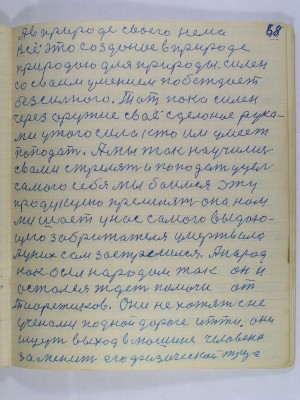 58
А в природе своего нема
всё это создоное в природе
природою для природы. силен
со своим умением побеждает
безсилного. Тот пока силен
через оружие своё сделоное рука-
ми у того сила кто им умеет
попадат. А мы так научилися
свами стрелят и попадат у цел
самого себя мы боимся эту
продукцию применят она нам
ми шает у нас самого выдаю-
щиго забритателя умертвила
Луних сам застрелился. А народ
как был народом так он и
остался ждет помочи от
Тиоретиков. Они не хотят с не
учеными подной дороге итти. они
ищут выход в машине человека
заменит его физической труд